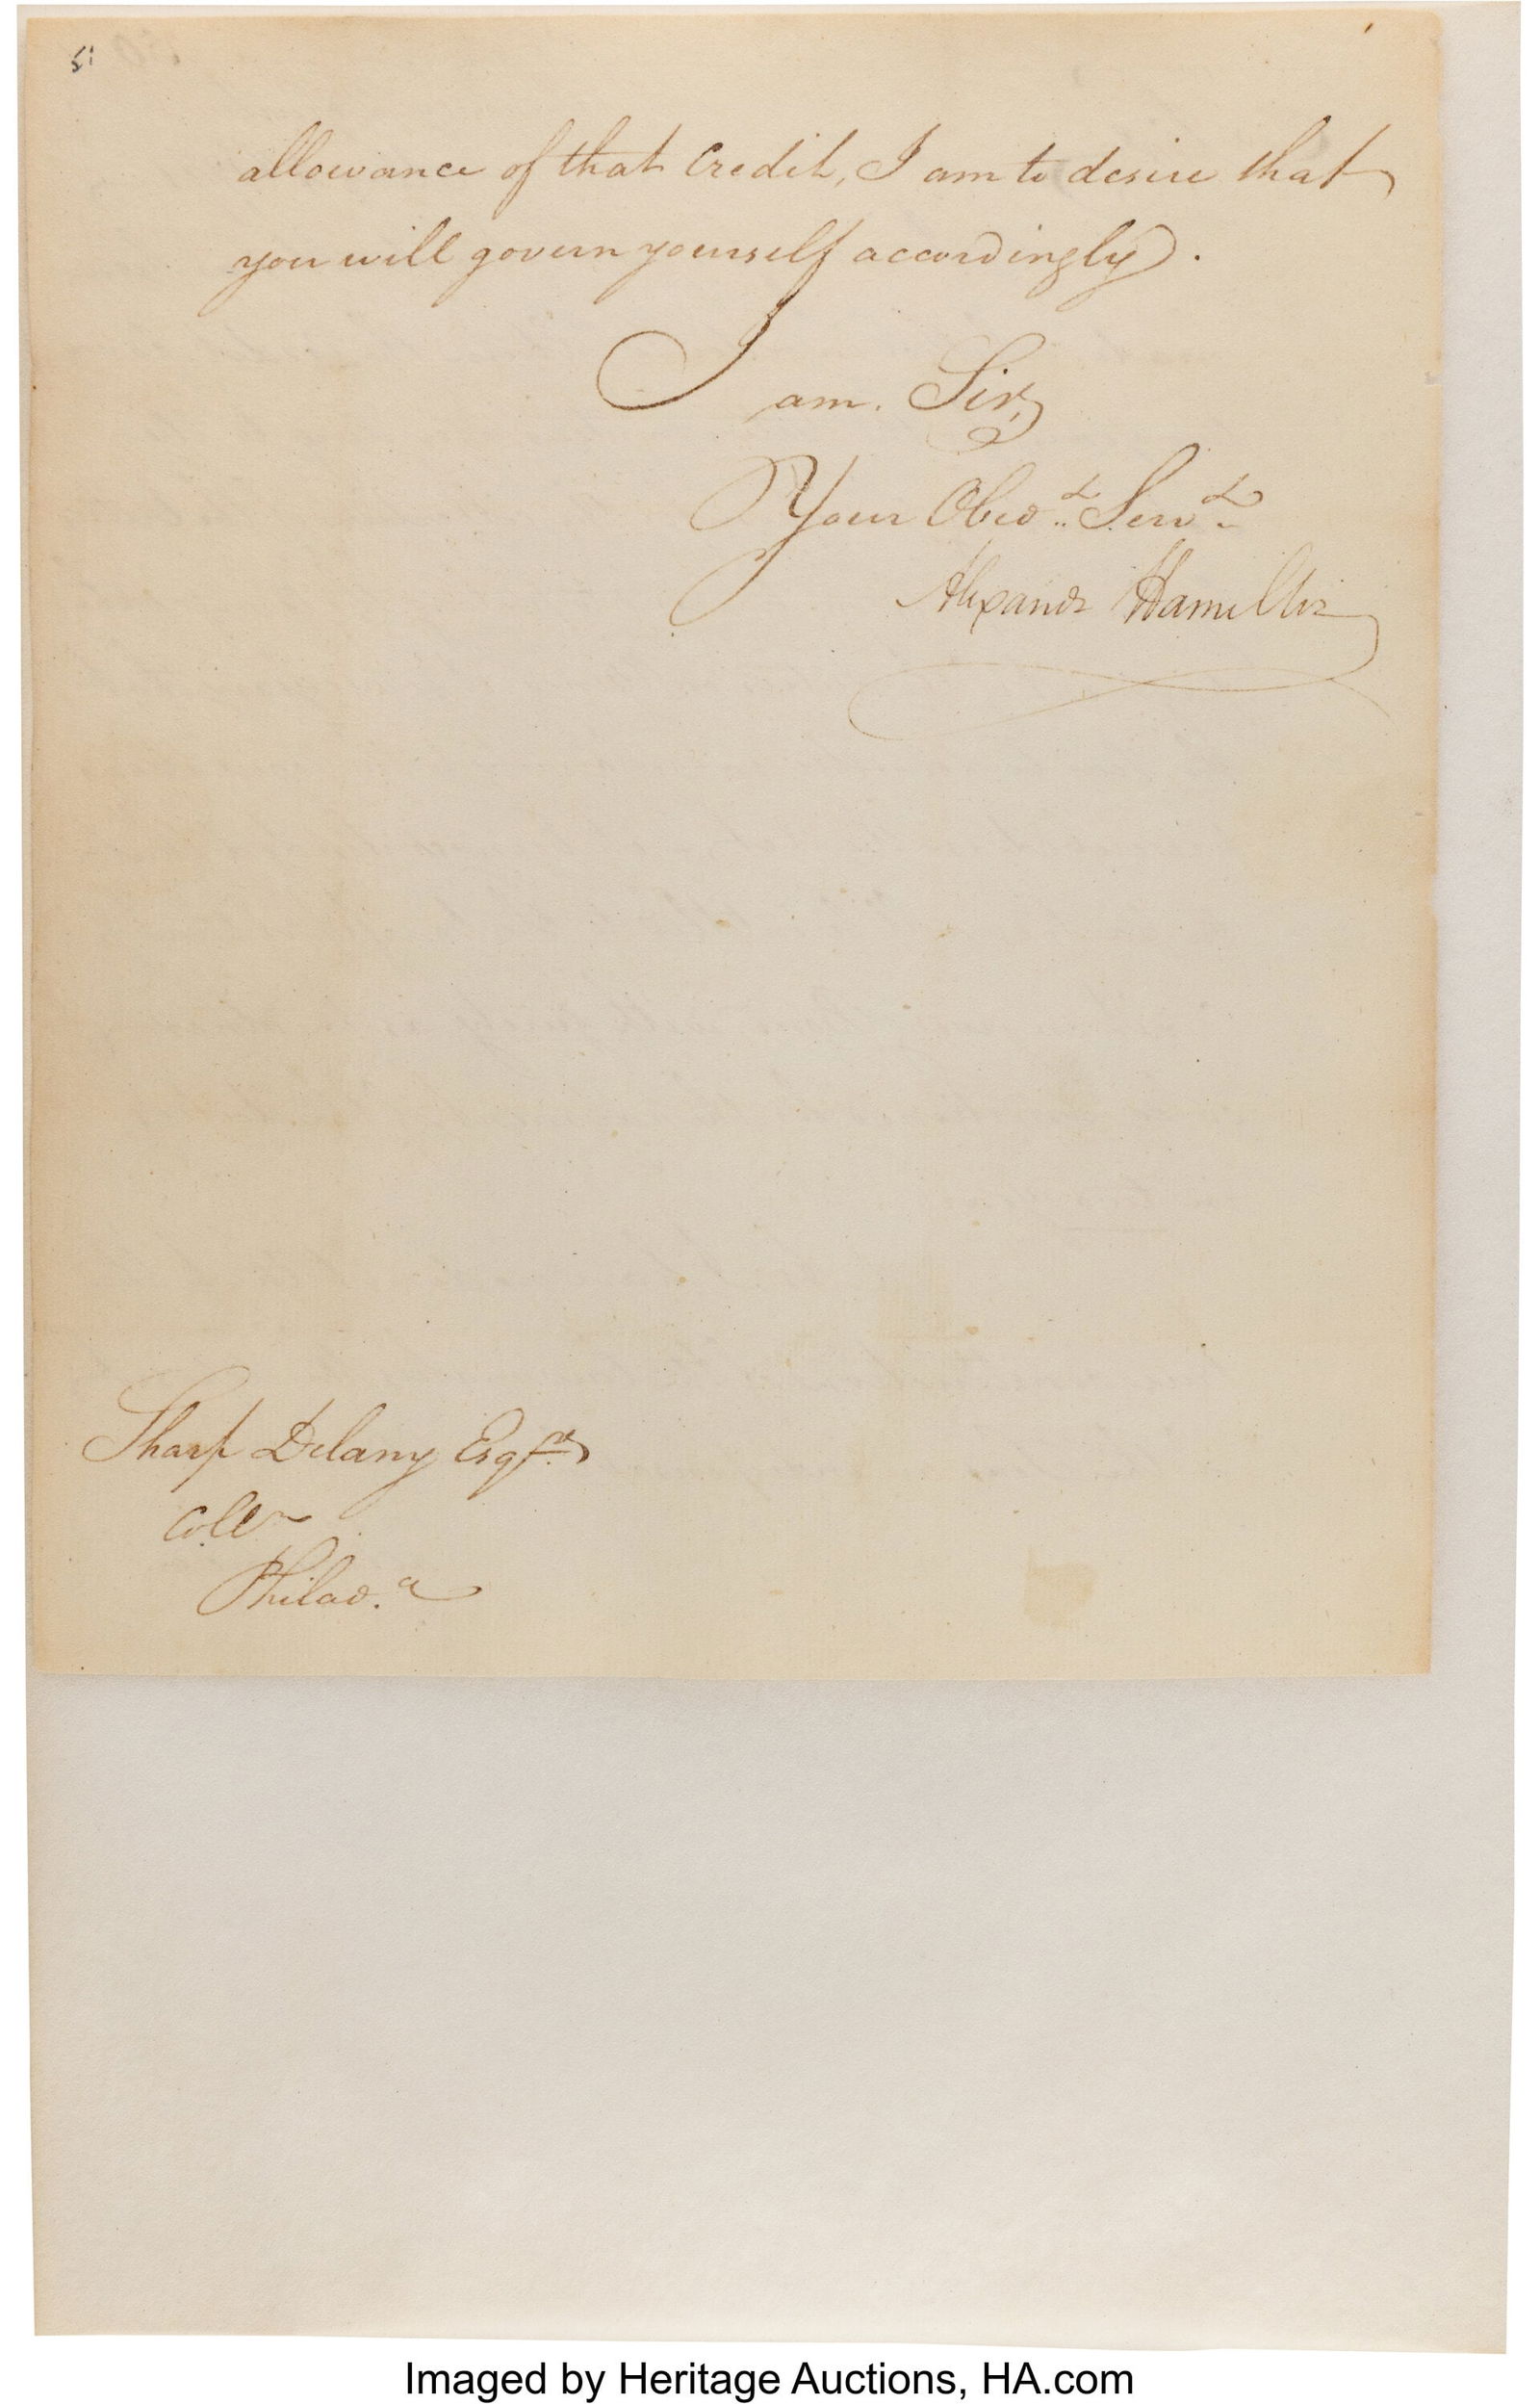 allowance of that Credit, I am to desire that
you will govern yourself accordingly.
I am. Sir,
Your Obedt. Servt.
Alexander Hamilton
Sharp Delany Esqre.
Collr
Philada.
Imaged by Heritage Auctions, HA.com